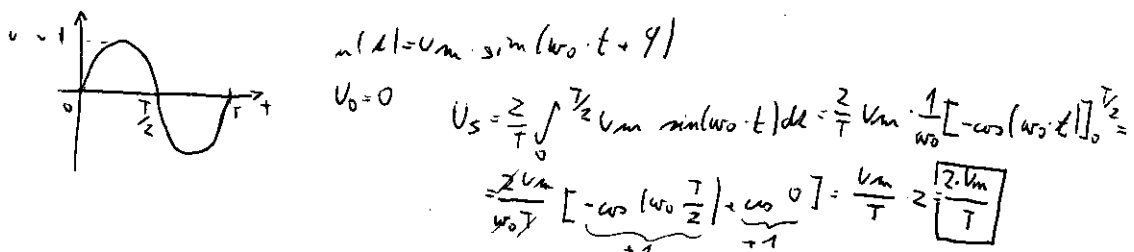 u(t)=Um·sin(ω0·t+φ)
U0=0
Us = 2/T ∫0^T/2 Um sin(ω0·t)dt = 2/T Um · 1/ω0 [-cos(ω0·t)]0^T/2 =
= 2Um/ω0T [-cos(ω0 T/2)+cos 0] = Um/T · 2 = 2·Um/T
+1 +1
0 T/2 T t